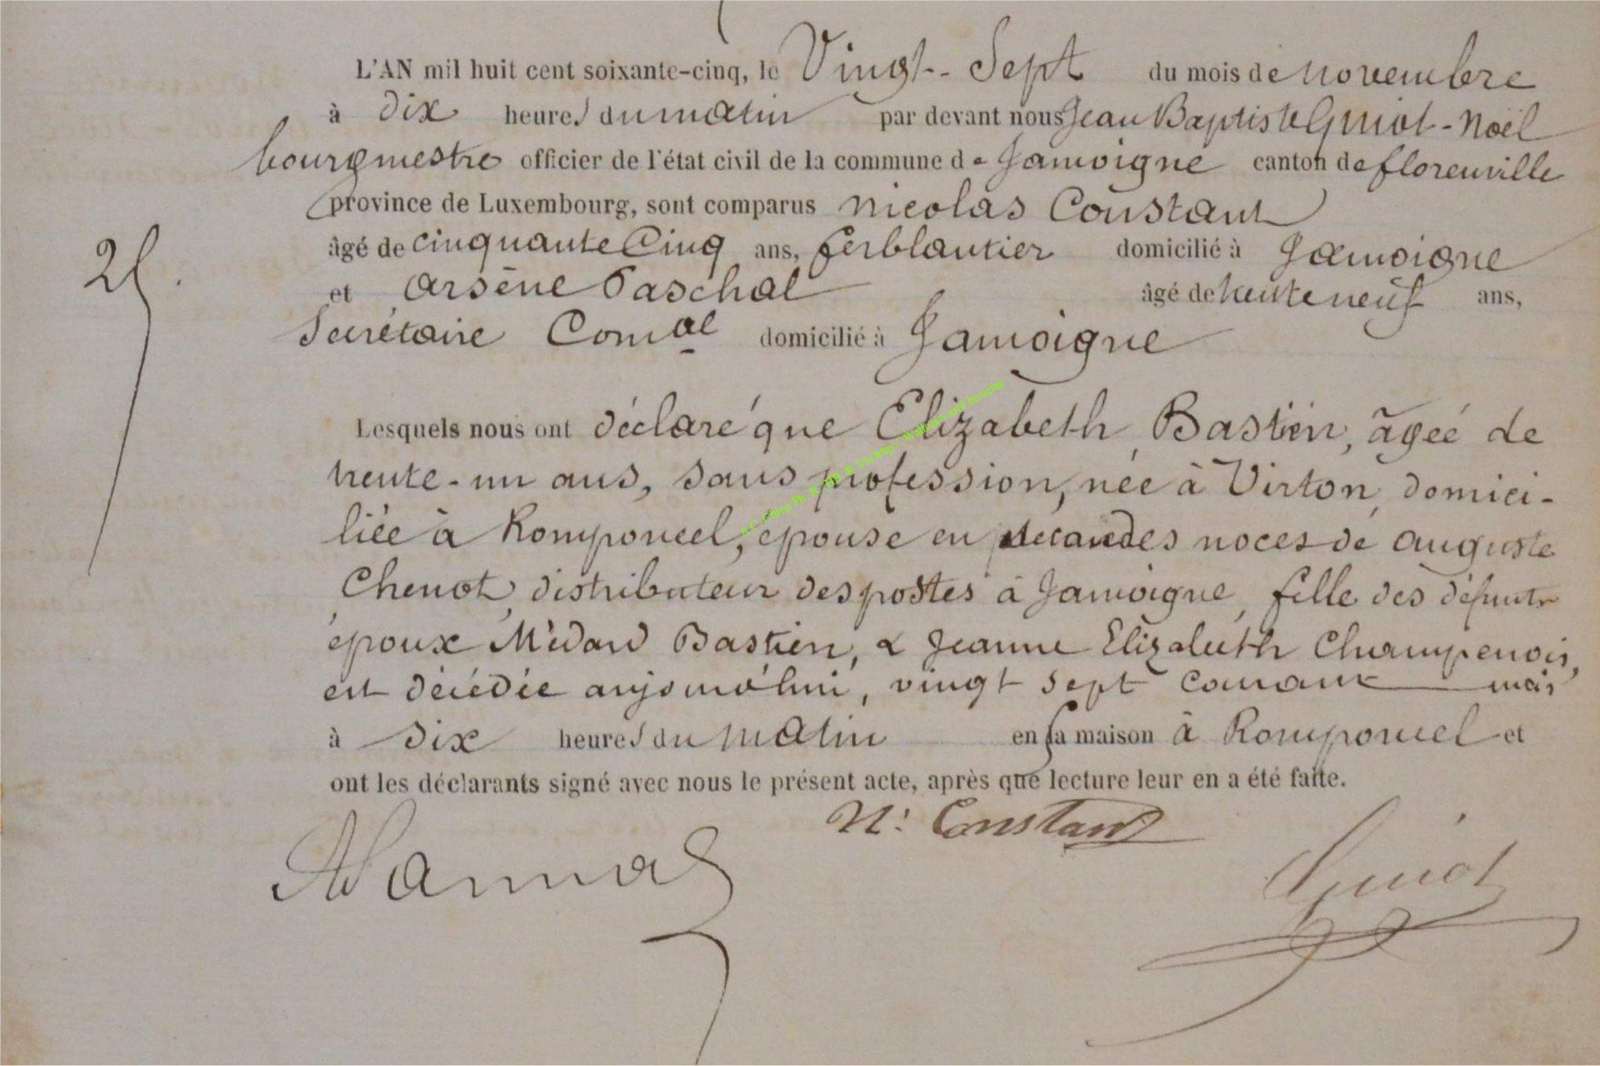 L'AN mil huit cent soixante-cinq, le Vingt-Sept du mois de novembre
à dix heures du matin par devant nous Jean Baptiste Guiot-Noël
bourgmestre officier de l'état civil de la commune de Jamoigne canton de florenville
province de Luxembourg, sont comparus nicolas Constant
âgé de cinquante Cinq ans, ferblantier domicilié à Jamoigne
25.
et arsène Paschal âgé de trente neuf ans,
Secrétaire Comal domicilié à Jamoigne
Lesquels nous ont déclaré que Elizabeth Bastien, âgée de
trente-un ans, sans profession, née à Virton, domici-
liée à Romponcel, épouse en secondes noces de auguste
Chenot, distributeur des postes à Jamoigne, fille des défunts
époux Médard Bastien, & Jeanne Elizabeth Champenois,
est décédée aujourd'hui, vingt sept courant mois
à six heures du matin en sa maison à Romponcel et
ont les déclarants signé avec nous le présent acte, après que lecture leur en a été faite.
N: Constant
Guiot